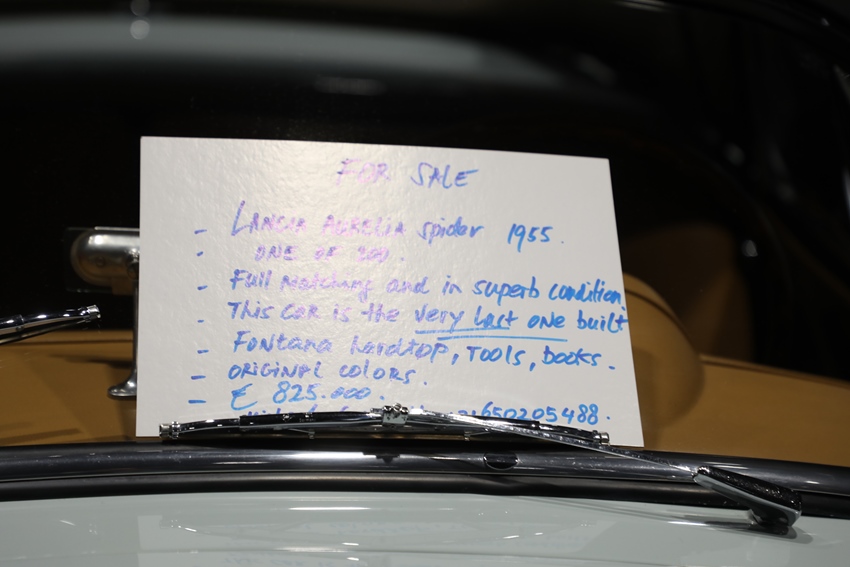 FOR SALE
- LANCIA AURELIA spider 1955.
- ONE OF 200.
- Full Matching and in superb condition.
- This car is the very last one built
- Fontana hardtop, Tools, books.
- ORIGINAL COLORS.
- € 825.000.
650205488.